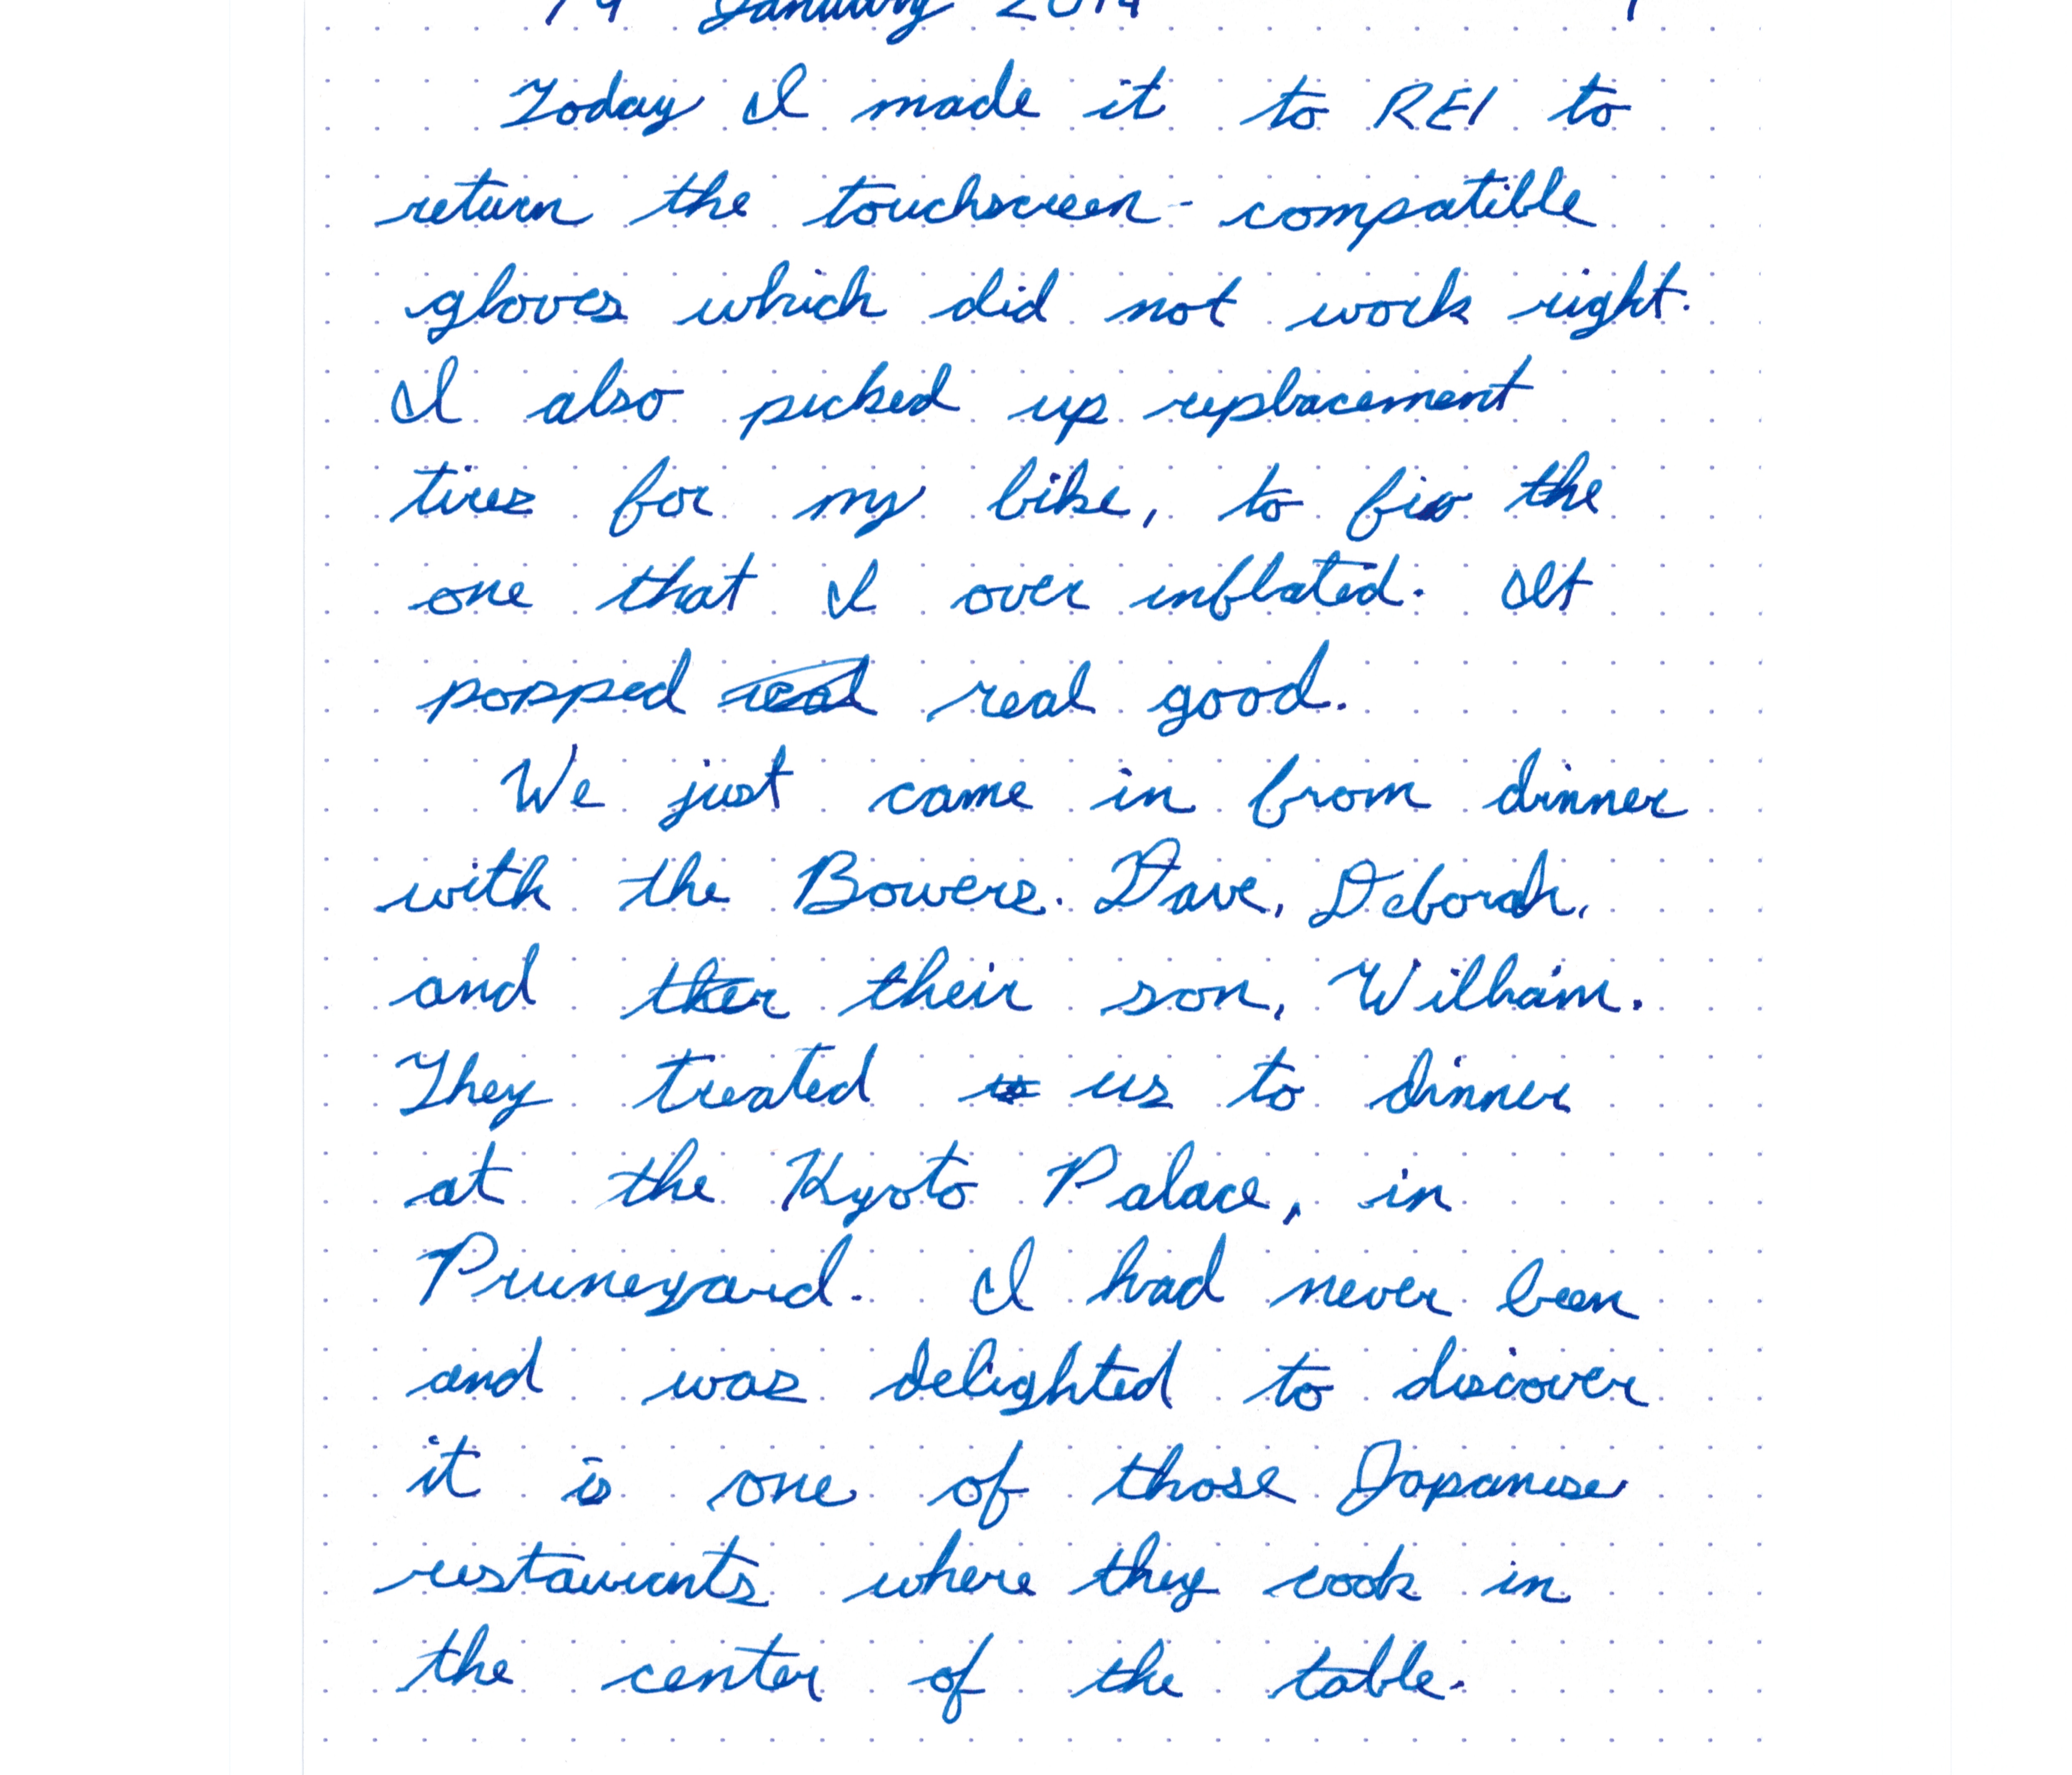 January
Today I made it to REI to
return the touchscreen-compatible
gloves which did not work right.
I also picked up replacement
tires for my bike, to fix the
one that I over inflated. It
popped real real good.
We just came in from dinner
with the Bowers. Dave, Deborah,
and ther their son, William.
They treated to us to dinner
at the Kyoto Palace, in
Pruneyard. I had never been
and was delighted to discover
it is one of those Japanese
restaurants where they cook in
the center of the table.